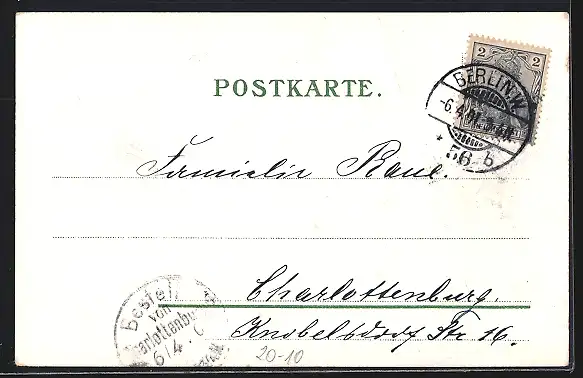 POSTKARTE.
2 2
BERLIN.W.
-6.4.01.
* 56 b
Familie Raue.
Charlottenburg.
Knobelsdorf Str 16.
Bestellt
von
Charlottenburg
6/4.
20-10